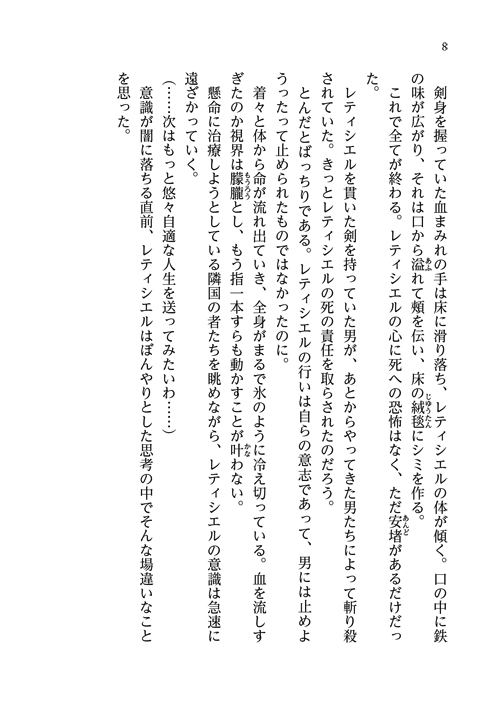 8
剣身を握っていた血まみれの手は床に滑り落ち、レティシエルの体が傾く。口の中に鉄
の味が広がり、それは口から溢れて頬を伝い、床の絨毯にシミを作る。
これで全てが終わる。レティシエルの心に死への恐怖はなく、ただ安堵があるだけだっ
た。
レティシエルを貫いた剣を持っていた男が、あとからやってきた男たちによって斬り殺
されていた。きっとレティシエルの死の責任を取らされたのだろう。
とんだとばっちりである。レティシエルの行いは自らの意志であって、男には止めよ
うったって止められたものではなかったのに。
着々と体から命が流れ出ていき、全身がまるで氷のように冷え切っている。血を流しす
ぎたのか視界は朦朧とし、もう指一本すらも動かすことが叶わない。
懸命に治療しようとしている隣国の者たちを眺めながら、レティシエルの意識は急速に
遠ざかっていく。
（……次はもっと悠々自適な人生を送ってみたいわ……）
意識が闇に落ちる直前、レティシエルはぼんやりとした思考の中でそんな場違いなこと
を思った。